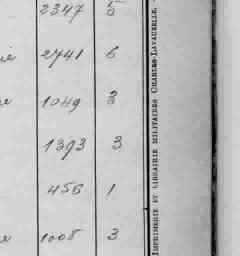 2347 5
2741 6
1049 3
1393 3
456 1
1008 3
IMPRIMERIE ET LIBRAIRIE MILITAIRES CHARLES-LAVAUZELLE.